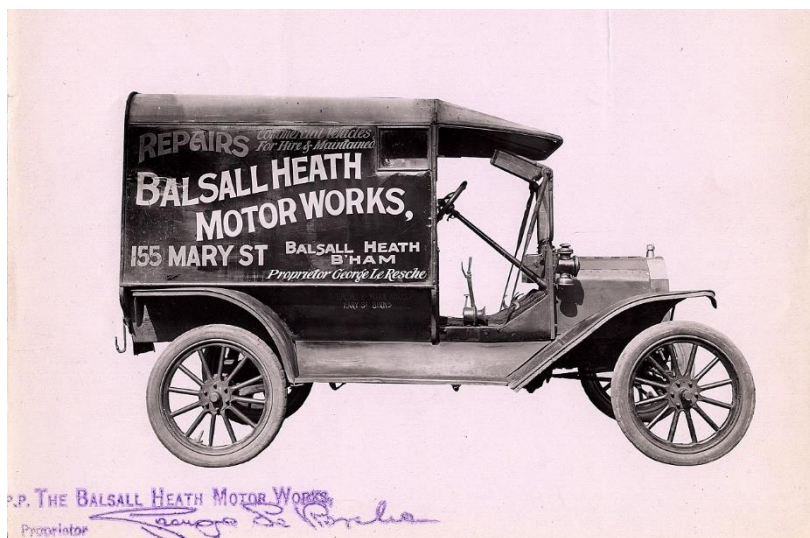 REPAIRS
Commercial Vehicles
For Hire & Maintained
BALSALL HEATH
MOTOR WORKS,
155 MARY ST
BALSALL HEATH
B'HAM
Proprietor George Le Resche
P.P. THE BALSALL HEATH MOTOR WORKS,
George Le Resche
Proprietor